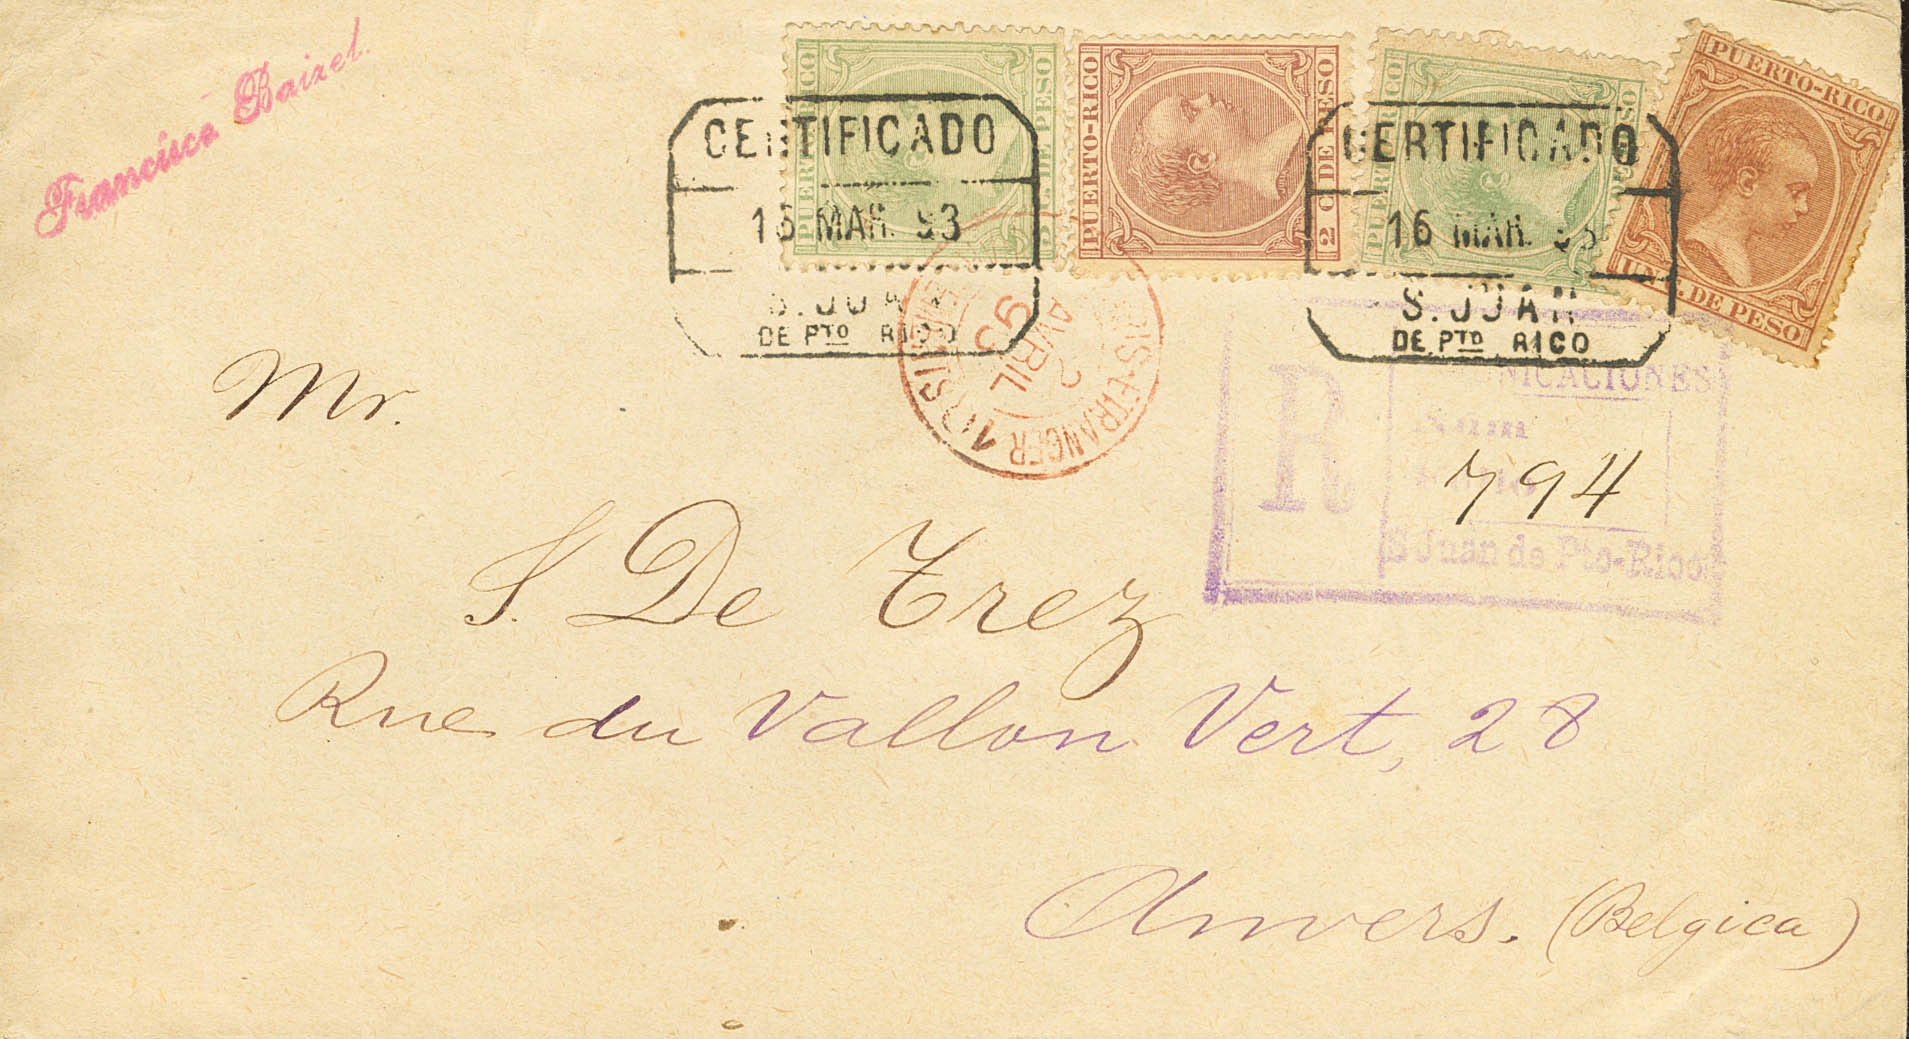 Francisco Baixel.
PUERTO-RICO
DE PESO
PUERTO-RICO
2 C. DE PESO
PUERTO-RICO
DE PESO
PUERTO-RICO
DE PESO
CERTIFICADO
MAR. 93
S. JUAN
DE PTO RICO
CERTIFICADO
16 MAR.
S. JUAN
DE PTO RICO
ETRANGER
2
AVRIL
93
R
NICACIONES
S Juan de Pto-Rico
794
Mr.
S. De Trez
Rue du Vallon Vert, 28
Anvers. (Belgica)